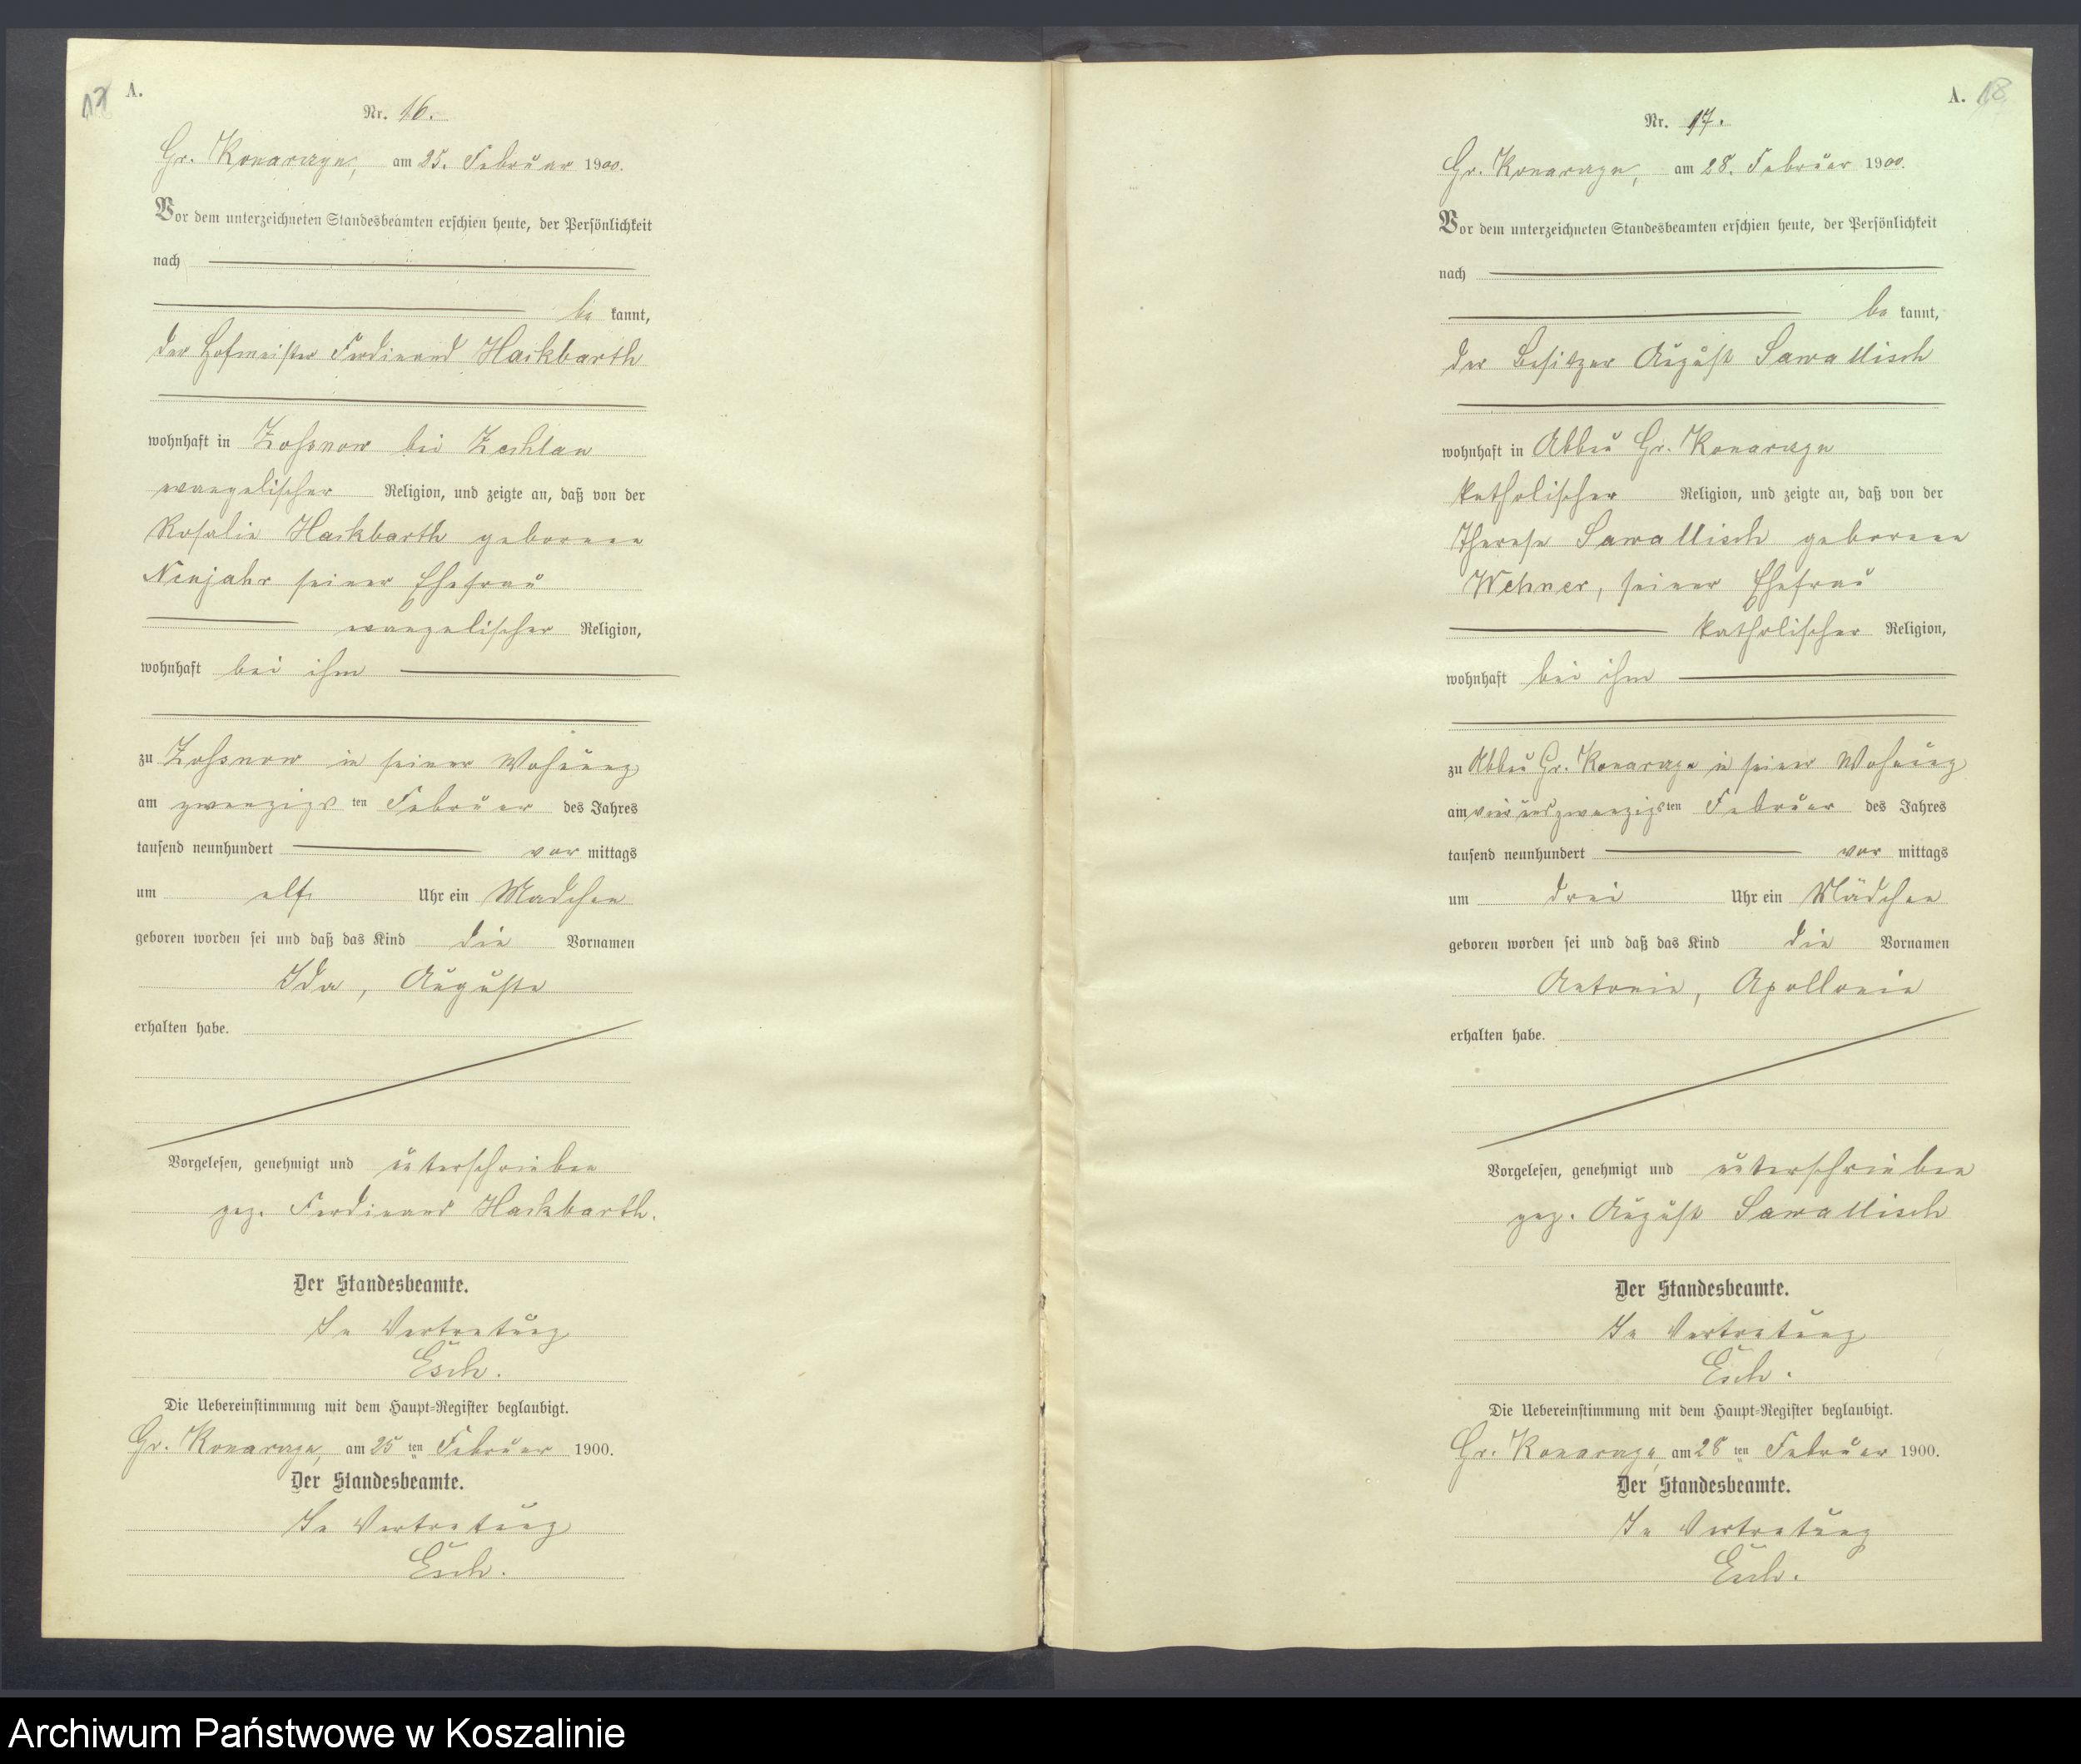 17
A.
Nr. 16.
Gr. Konarczyn, am 25. Februar 1900.
Vor dem unterzeichneten Standesbeamten erschien heute, der Persönlichkeit
nach
be kannt,
der Hofmeister Ferdinand Hackbarth
wohnhaft in bei
evangelischer Religion, und zeigte an, daß von der
Rosalie Hackbarth geborene
Neujahr seiner Ehefrau
evangelischer Religion,
wohnhaft bei ihm
zu in seiner Wohnung
am zwanzigs ten Februar des Jahres
tausend neunhundert vor mittags
um elf Uhr ein Madchen
geboren worden sei und daß das Kind die Vornamen
Ida, Auguste
erhalten habe.
Vorgelesen, genehmigt und unterschrieben
gez. Ferdinand Hackbarth.
Der Standesbeamte.
In Vertretung
Esch.
Die Uebereinstimmung mit dem Haupt-Register beglaubigt.
Gr. Konarczyn, am 25 ten Februar 1900.
Der Standesbeamte.
In Vertretung
Esch.
A. 18
Nr. 17.
Gr. Konarczyn, am 28. Februar 1900.
Vor dem unterzeichneten Standesbeamten erschien heute, der Persönlichkeit
nach
be kannt,
der Besitzer August Sawallisch
wohnhaft in Abbau Gr. Konarczyn
katholischer Religion, und zeigte an, daß von der
Therese Sawallisch geborene
Wehner, seiner Ehefrau
katholischer Religion,
wohnhaft bei ihm
zu Abbau Gr. Konarczyn in seiner Wohnung
am vierundzwanzigs ten Februar des Jahres
tausend neunhundert vor mittags
um drei Uhr ein Mädchen
geboren worden sei und daß das Kind die Vornamen
Antonie, Apollonia
erhalten habe.
Vorgelesen, genehmigt und unterschrieben
gez. August Sawallisch
Der Standesbeamte.
In Vertretung
Esch.
Die Uebereinstimmung mit dem Haupt-Register beglaubigt.
Gr. Konarczyn, am 28 ten Februar 1900.
Der Standesbeamte.
In Vertretung
Esch.
Archiwum Państwowe w Koszalinie